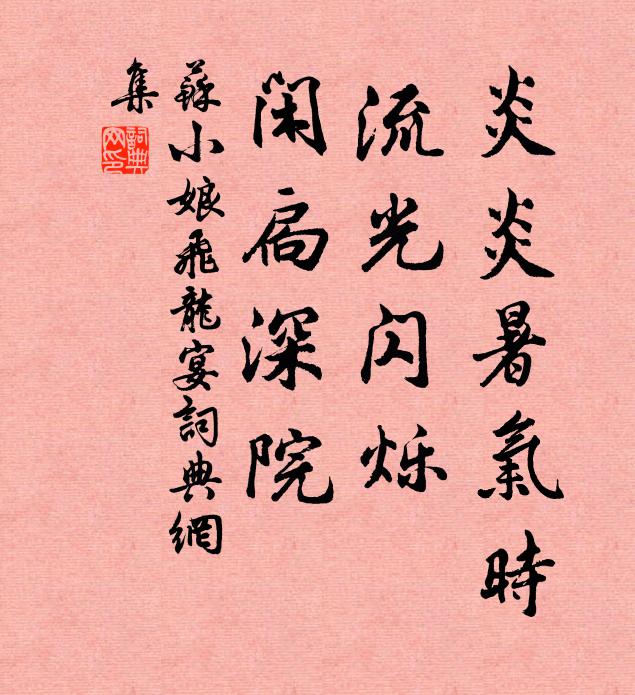 炎炎暑氣時
流光闪烁
闲扃深院
蘇小娘飛龍宴詞典網
集
詞典網印